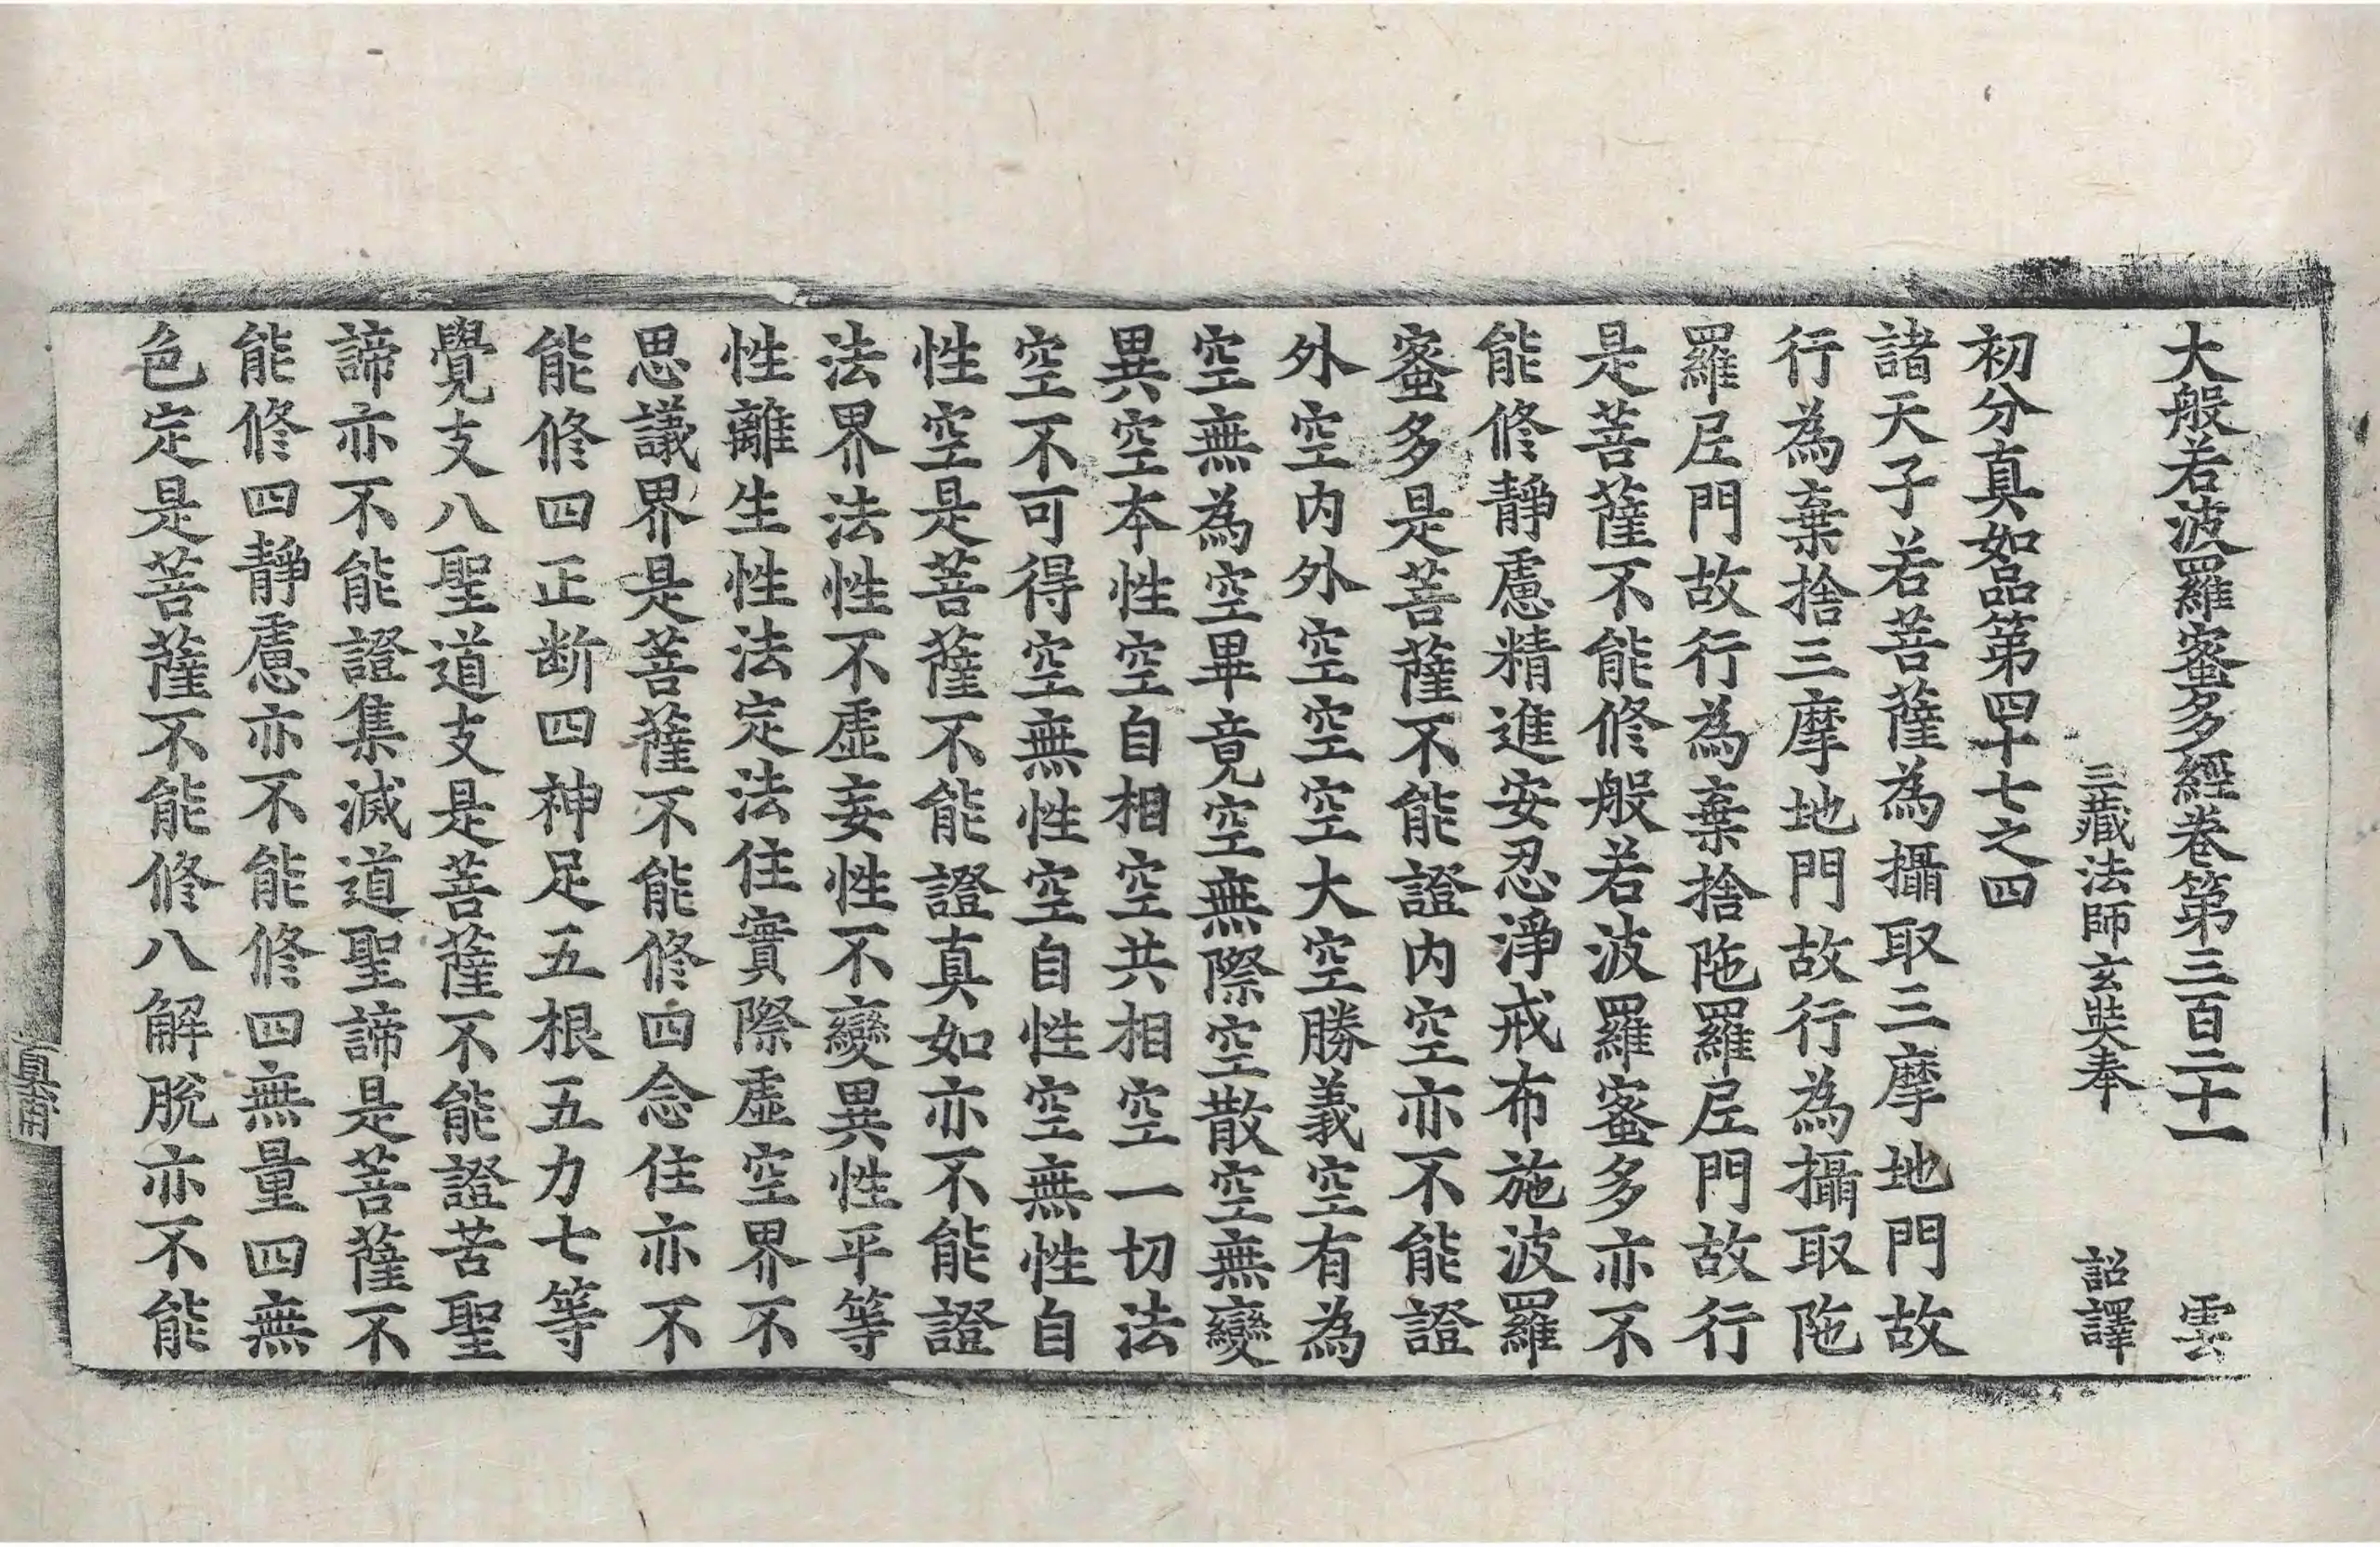 大般若波羅蜜多經卷第三百二十一　雲
三藏法師玄奘奉　詔譯
初分真如品第四十七之四
諸天子若菩薩為攝取三摩地門故
行為棄捨三摩地門故行為攝取陁
羅尼門故行為棄捨陁羅尼門故行
是菩薩不能修般若波羅蜜多亦不
能修靜慮精進安忍淨戒布施波羅
蜜多是菩薩不能證内空亦不能證
外空内外空空空大空勝義空有為
空無為空畢竟空無際空散空無變
異空本性空自相空共相空一切法
空不可得空無性空自性空無性自
性空是菩薩不能證真如亦不能證
法界法性不虛妄性不變異性平等
性離生性法定法住實際虛空界不
思議界是菩薩不能修四念住亦不
能修四正断四神足五根五力七等
覺支八聖道支是菩薩不能證苦聖
諦亦不能證集滅道聖諦是菩薩不
能修四靜慮亦不能修四無量四無
色定是菩薩不能修八解脫亦不能